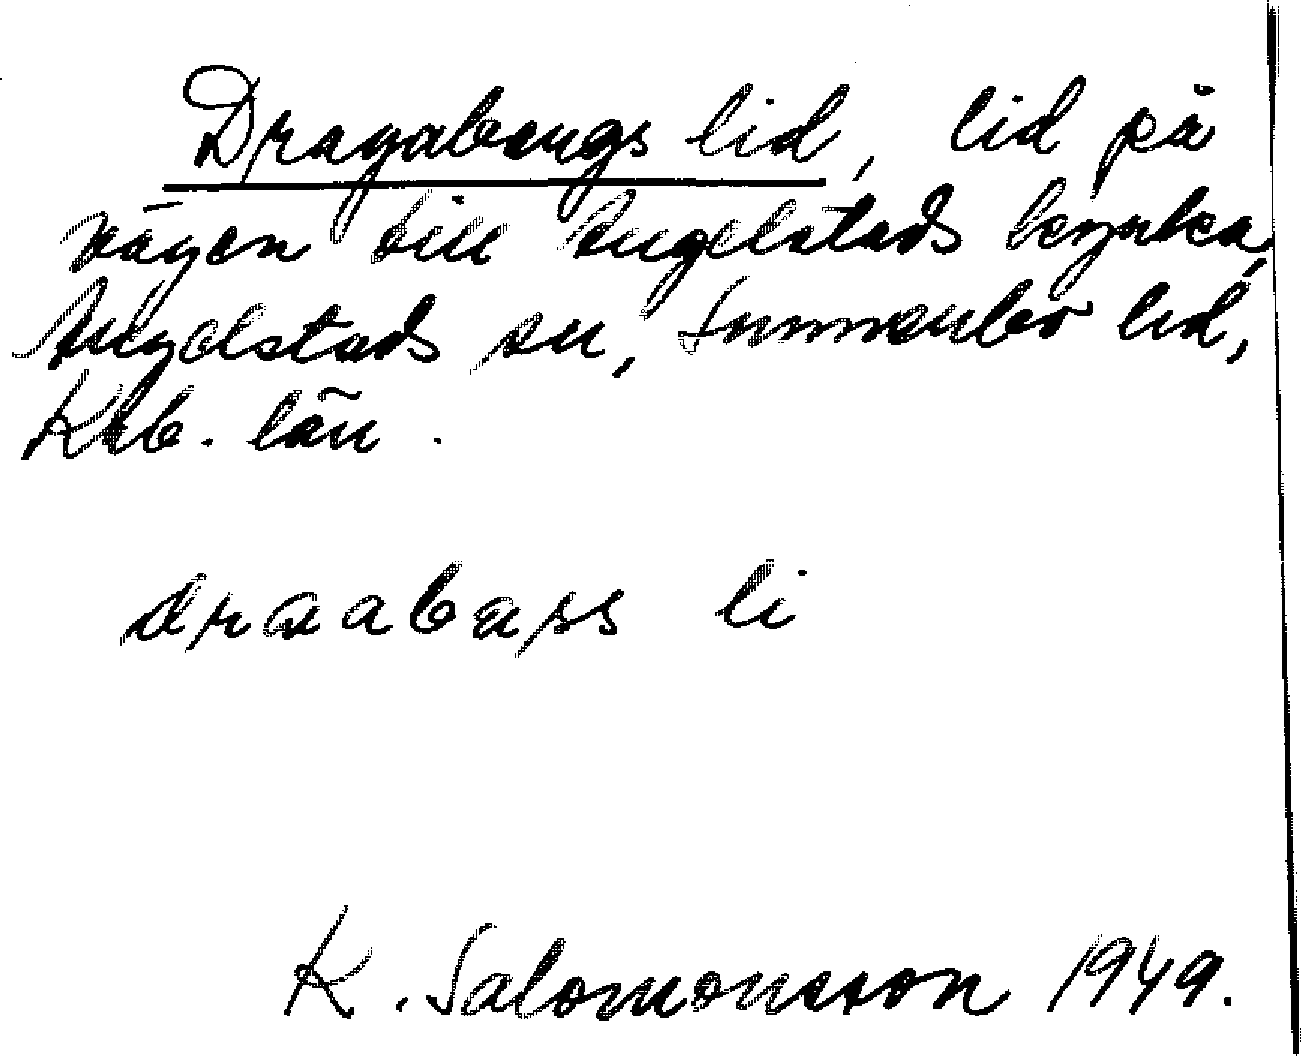 Dragabergs lid, lid på
vägen till Angelstads kyrka,
Angelstads sn, Sunnerbo hd,
Krb. län.
draabass li
K. Salomonsson 1949.